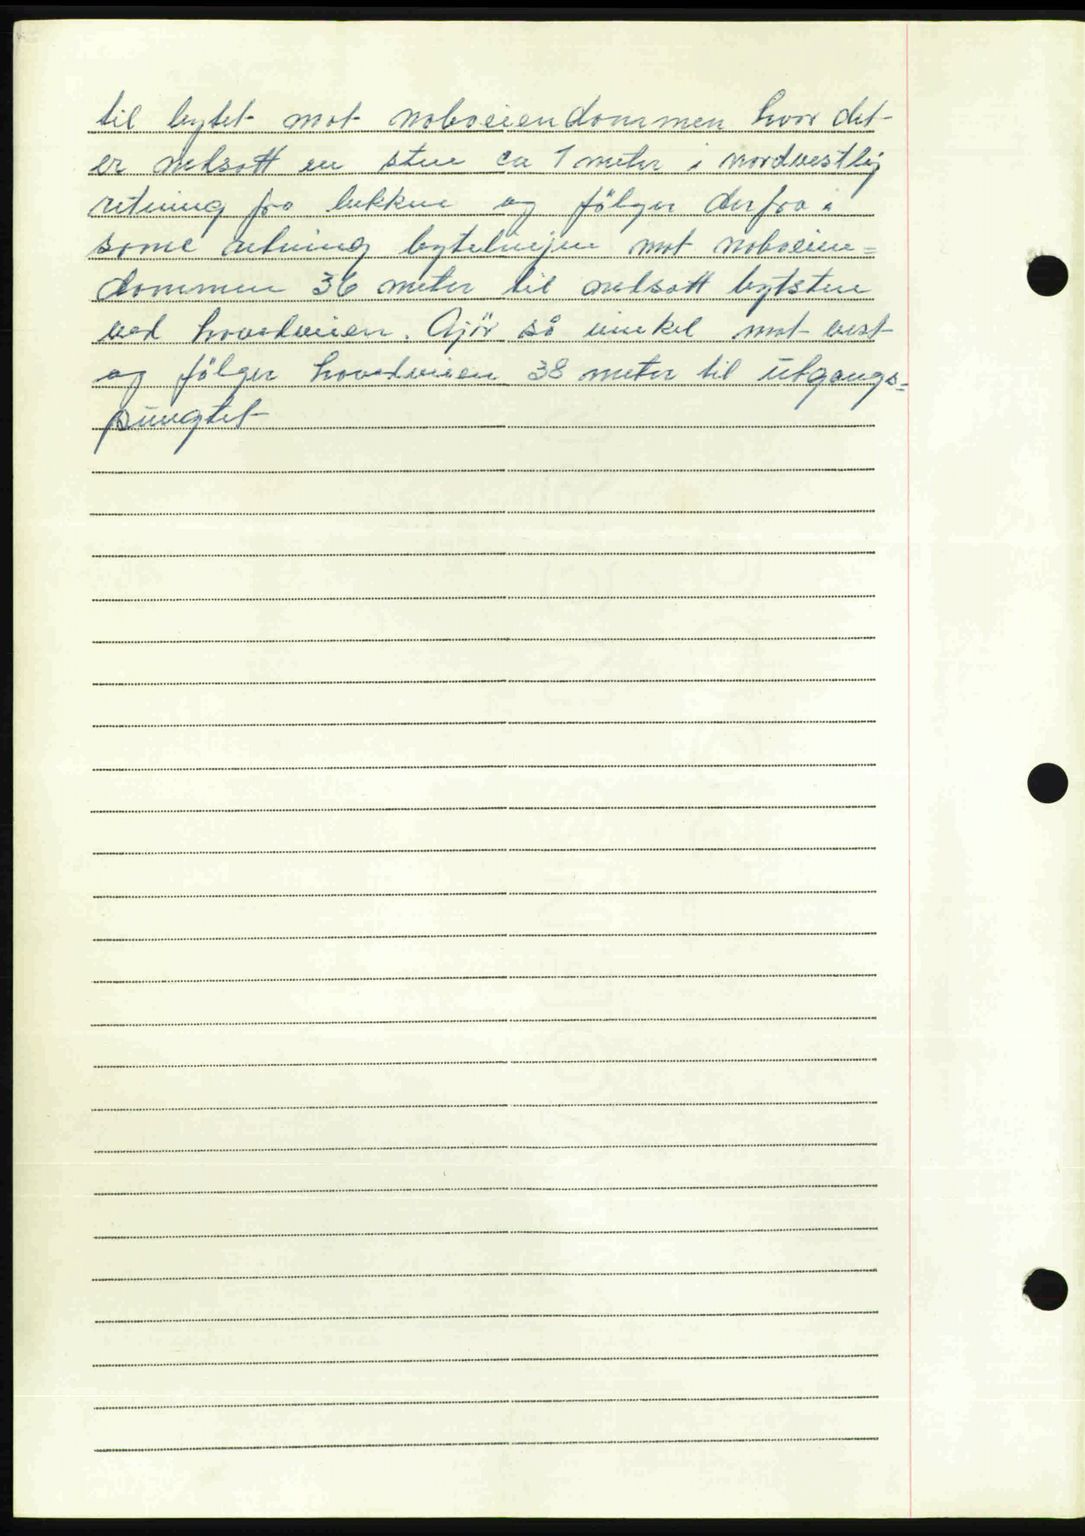 til bytet mot naboeiendommen hvor det
er nedsatt en sten ca 1 meter i nordvestlig
retning fra bekken og følger derfra i
same retning bytelinjen mot naboeien=
dommen 36 meter til nedsatt bytsten
ved hovedveien. Gjör så vinkel mot vest
og fölger hovedveien 38 meter til utgangs=
pungtet